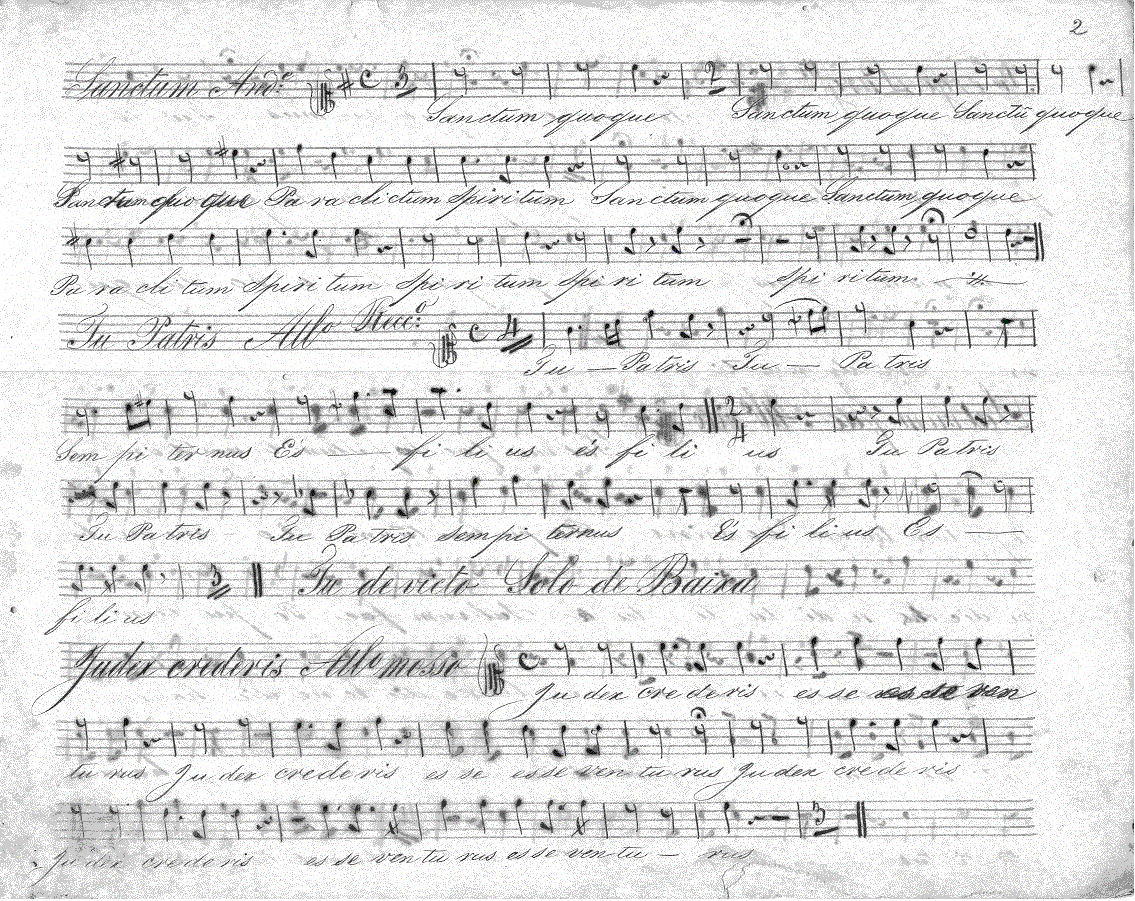 2
Sanctum And.º 3 2
Sanctum quoque Sanctum quoque Sanctũ quoque
Sanctum quoque Pa ra cli ctum Spiri tum Sanctum quoque Sanctum quoque
Pa ra cli tum Spiri tum Spi ri tum Spi ri tum Spi ri tum
Tu Patris Allo Recc.º 4
Tu — Patris Tu — Pa tris
Sem pi ter nus Es — fi li us és fi li us Tu Patris
2/4
Tu Patris Tu Patris Sempi ternus Es fi li us Es —
3 Tu de victo Solo de Baixa
fi li us
Judex crederis Allo mosso
Ju dex cre de ris es se es se ven
tu rus Ju dex crede ris es se esse ven tu rus Judex cre de ris
3
Ju dex crede ris es se ven tu rus es se ven tu — rus